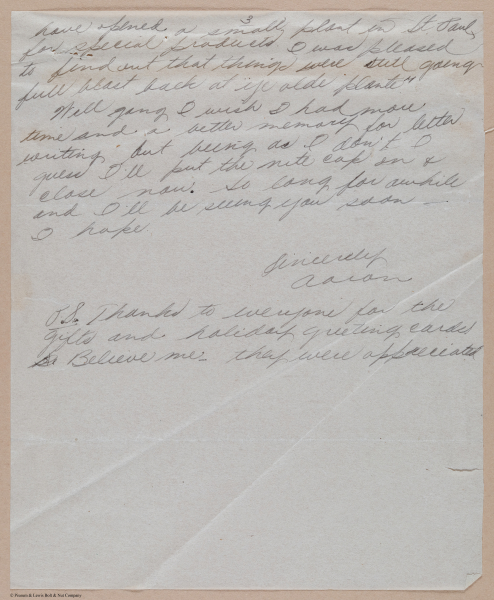 3
have opened a small plant in St Paul
for special products I was pleased
to find out that things were still going
full blast back at "ye olde plante"
Well gang I wish I had more
time and a better memory for letter
writing, but being as I don't I
guess I'll put the nite cap on &
close now. So long for awhile
and I'll be seeing you soon —
I hope.
Sincerely
Aaron
P.S. Thanks to everyone for the
gifts and holiday greeting cards
Believe me - they were appreciated
© Premax & Lewis Bolt & Nut Company